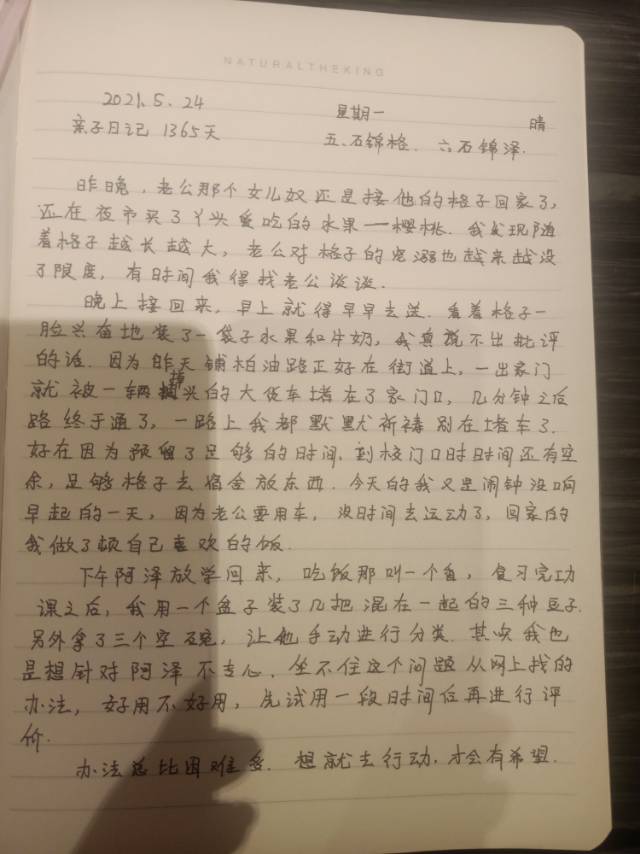 NATURALTHEKING
2021.5.24 星期一 晴
亲子日记 1365天 五.石锦格. 六石锦泽.
昨晚，老公那个女儿奴还是接他的格子回家了，
还在夜市买了丫头爱吃的水果——樱桃. 我发现随
着格子越长越大，老公对格子的宠溺也越来越没
了限度，有时间我得找老公谈谈.
晚上接回来，早上就得早早去送. 看着格子一
脸兴奋地装了一袋子水果和牛奶，我真说不出批评
的话. 因为昨天铺柏油路正好在街道上，一出家门
就被一辆掉头的大货车堵在了家门口，几分钟之后
路终于通了，一路上我都默默祈祷别在堵车了.
好在因为预留了足够的时间，到校门口时时间还有空
余，足够格子去宿舍放东西. 今天的我又是闹钟没响
早起的一天，因为老公要用车，没时间去运动了，回家的
我做了顿自己喜欢的饭.
下午阿泽放学回来，吃饭那叫一个鱼，复习完功
课之后，我用一个盆子装了几把混在一起的三种豆子.
另外拿了三个空碗，让他手动进行分类. 其实我也
是想针对阿泽不专心. 坐不住这个问题从网上找的
办法，好用不好用，先试用一段时间后再进行评
价.
办法总比困难多. 想就去行动，才会有希望.